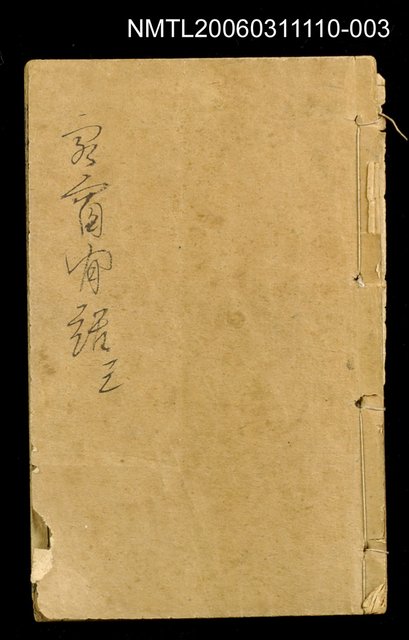 NMTL20060311110-003
客窗閒話三